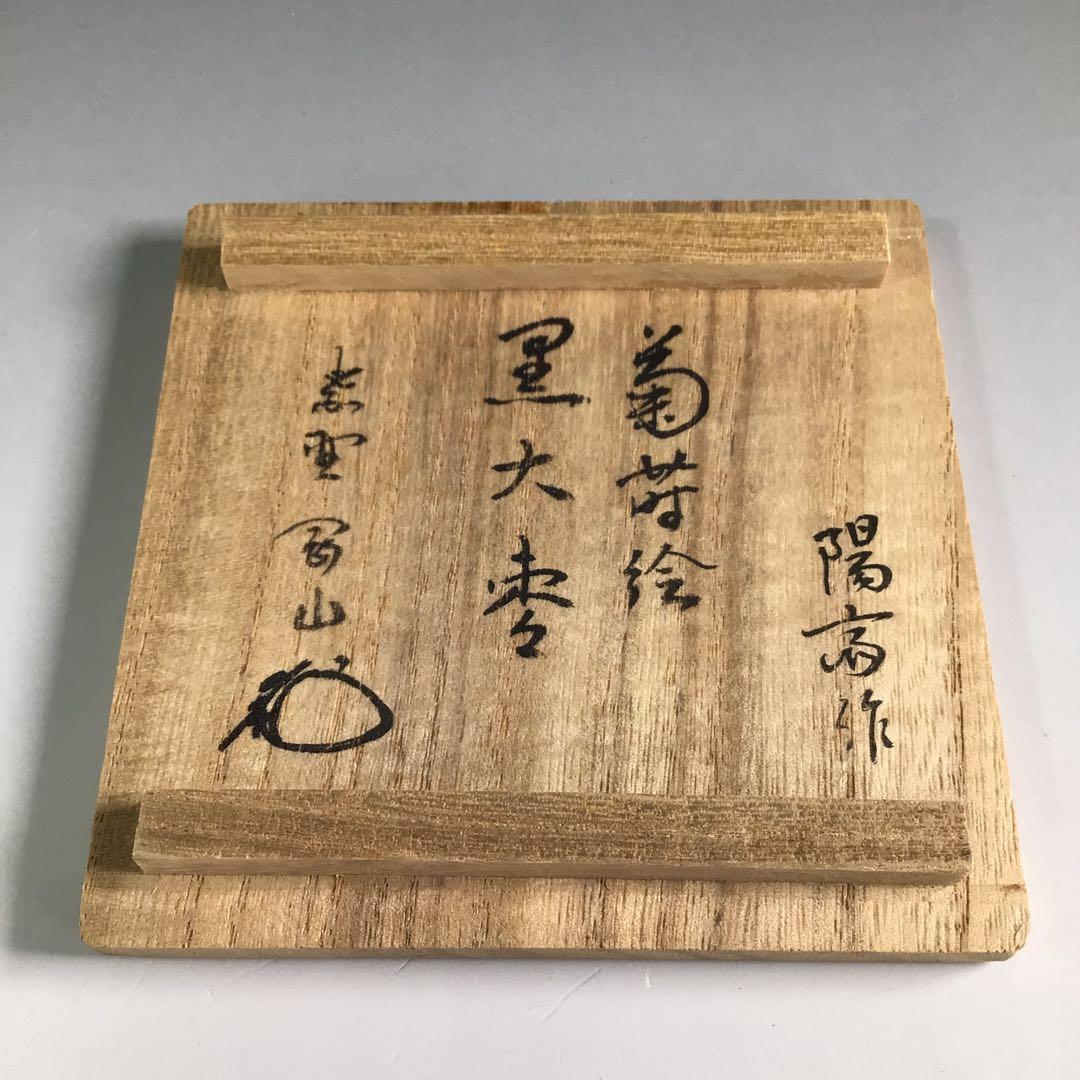 陽斎作
菊蒔絵
黒大棗
紫野 寛山